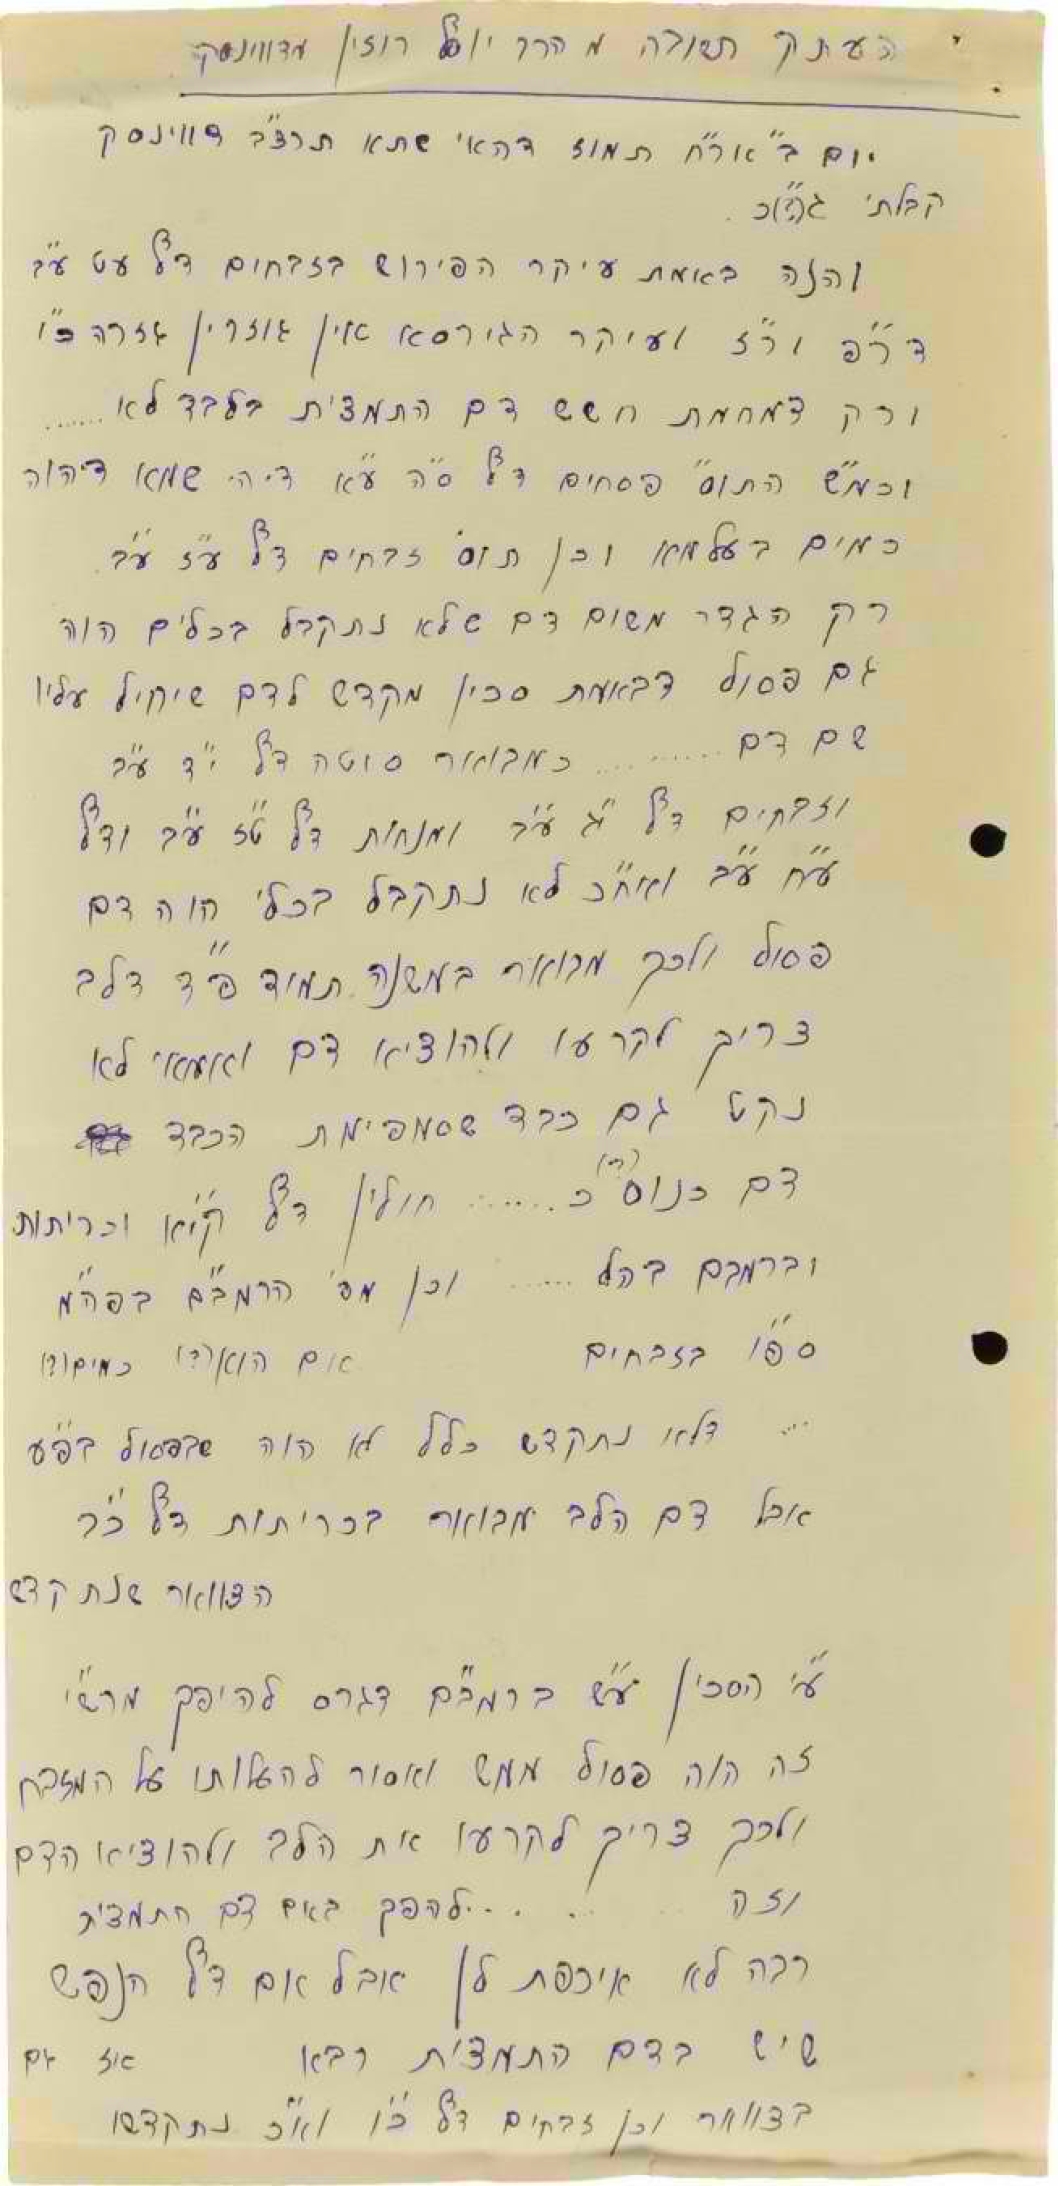 העתק תשובה מ הרב יוסף רוזין מדווינסק
יום ב" אור"ח תמוז דהאי שתא תרצ"ב דווינסק
קבלתי
והנה באמת עיקר הפירוש בזבחים דף עט ע"ב
ור"ז ועיקר הגירסא אין גוזרין גזרה כ"ו
ורק דמחמת חשש דם התמצית בלבד לא .......
וכמ"ש התוס" פסחים דף ס"ה ע"א ד.ה. שמא דיהוה
כמים בעלמא וכן תוס' זבחים דף ע"ז ע"ב.
רק הגדר משום דם שלא נתקבל בכלים הוה
גם פסול דבאמת סכין מקדש לדם שיחיל עליו
שם דם .......... כמבואר סוטה דף י"ד ע"ב
וזבחים דף י"ג ע"ב ומנחות דף ט"ז ע"ב ודף
ע"ח ע"ב ואח"כ לא נתקבל בכלי הוה דם
פסול ולכך מבואר במשנה תמיד פ"ד דלב
צריך לקרעו ולהוציא דם ואמאי לא
נקט גם כבד שסמפימת הכבד
דם כנוס כ ....... חולין דף קי"א וכריתות
וברמבם בהל ...... וכן מפ' הרמב"ם בפה"מ
ספ"ו בזבחים אום הוא(?) כמים(?)
... דלא נתקדש כלל לא הוה שבפסול בפ"ע
אבל דם הלב מבואר בכריתות דף כ"ב
הצוואר שנתקדש
ע"י הסכין ע"ש ברמב"ם דגרס להיפך מרש"י
זה הוה פסול ממש ואסור להעלותו על המזבח
ולכך צריך לקרעו את הלב ולהוציא הדם
וזה ...... להפך באם דם התמצית
רבה לא איכפת לן אבל אם דף הנפש
שיש בדם התמצית רבא אז גם
בצוואר וכן זבחים דף כ"ו וא"כ נתקדשו